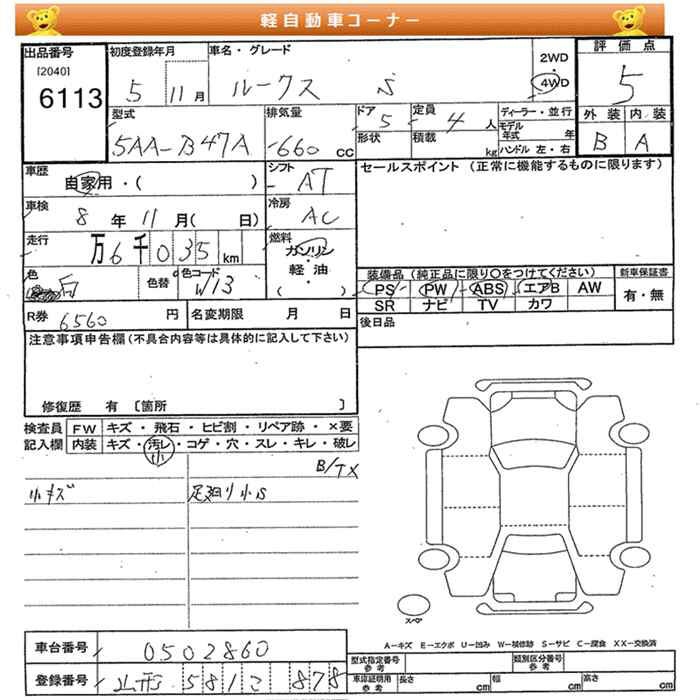 軽自動車コーナー
出品番号 初度登録年月 車名・グレード 2WD・4WD 評価点
[2040] 6113 5 11月 ルークス S 5
型式 排気量 ドア 5 定員 4人 ディーラー・並行 外装 内装
5AA-B47A -660 CC 形状 積載 kg モデル年式 年 B A
ハンドル 左・右
車歴 自家用・( ) シフト AT セールスポイント (正常に機能するものに限ります)
車検 8年 11月( 日) 冷房 AC
走行 万6千035km 燃料 ガソリン・軽油・( )
色 白 色替 色コード W13 装備品 (純正品に限り〇をつけてください) 新車保証書
PS PW ABS エアB AW 有・無
SR ナビ TV カワ
R券 6560円 名変期限 月 日 後日品
注意事項申告欄(不具合内容等は具体的に記入して下さい)
修復歴 有 〔箇所 〕
検査員記入欄 FW キズ・飛石・ヒビ割・リペア跡・×要
内装 キズ・汚レ・コゲ・穴・スレ・キレ・破レ
小
B/TX
小キズ 足廻り小S
スペア
A−キズ E−エクボ U−凹み W−補修跡 S−サビ C−腐食 XX−交換済
車台番号 0502860 型式指定番号 参考 類別区分番号 参考
登録番号 山形 581こ 878 車庫証明用 参考 長さ cm 幅 cm 高さ cm